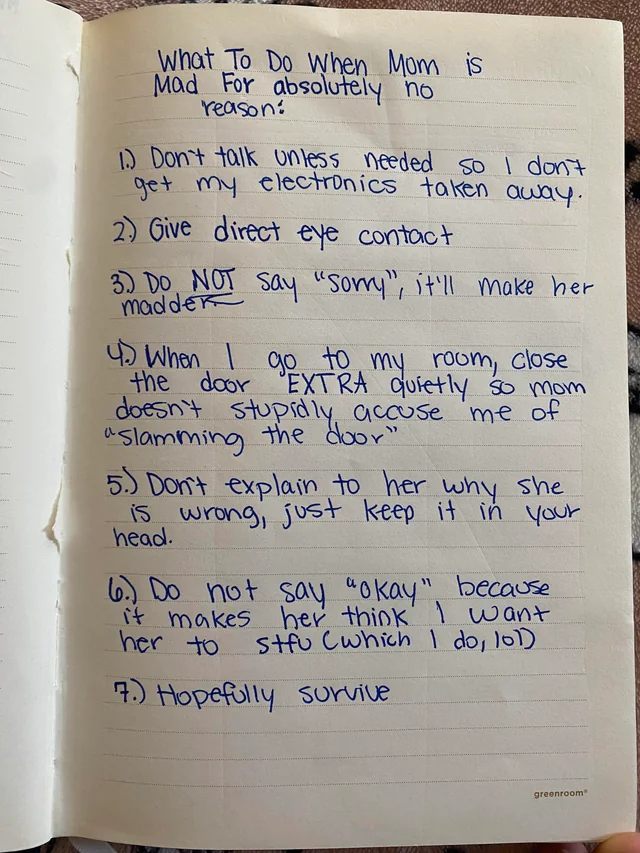 What To Do When Mom is
Mad For absolutely no
reason:
1.) Don't talk unless needed so I don't
get my electronics taken away.
2.) Give direct eye contact
3.) Do NOT say "sorry", it'll make her
madder
4.) When I go to my room, close
the door EXTRA quietly so mom
doesn't stupidly accuse me of
"slamming the door"
5.) Don't explain to her why she
is wrong, just keep it in your
head.
6.) Do not say "okay" because
it makes her think I want
her to stfu (which I do, lol)
7.) Hopefully survive
greenroom®